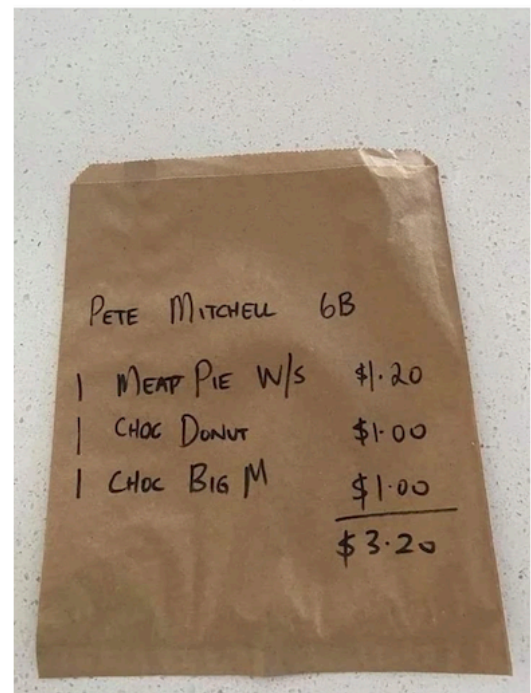 PETE MITCHELL 6B
1 MEAT PIE W/S $1.20
1 CHOC DONUT $1.00
1 CHOC BIG M $1.00
$3.20